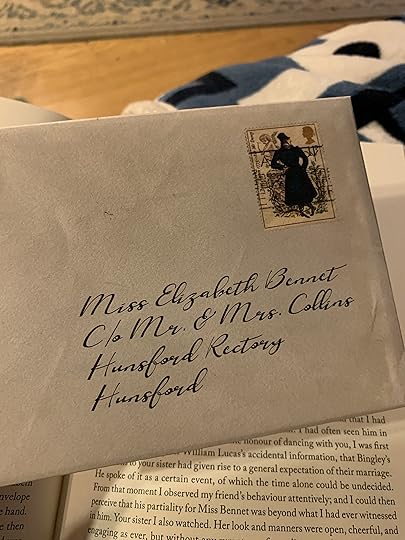 Miss Elizabeth Bennet
C/o Mr. & Mrs. Collins
Hunsford Rectory
Hunsford
that I had
I had often seen him in
honour of dancing with you, I was first
William Lucas's accidental information, that Bingley's
to your sister had given rise to a general expectation of their marriage.
He spoke of it as a certain event, of which the time alone could be undecided.
From that moment I observed my friend's behaviour attentively; and I could then
perceive that his partiality for Miss Bennet was beyond what I had ever witnessed
in him. Your sister I also watched. Her look and manners were open, cheerful, and
engaging as ever, but without any
envelope
hand.
then